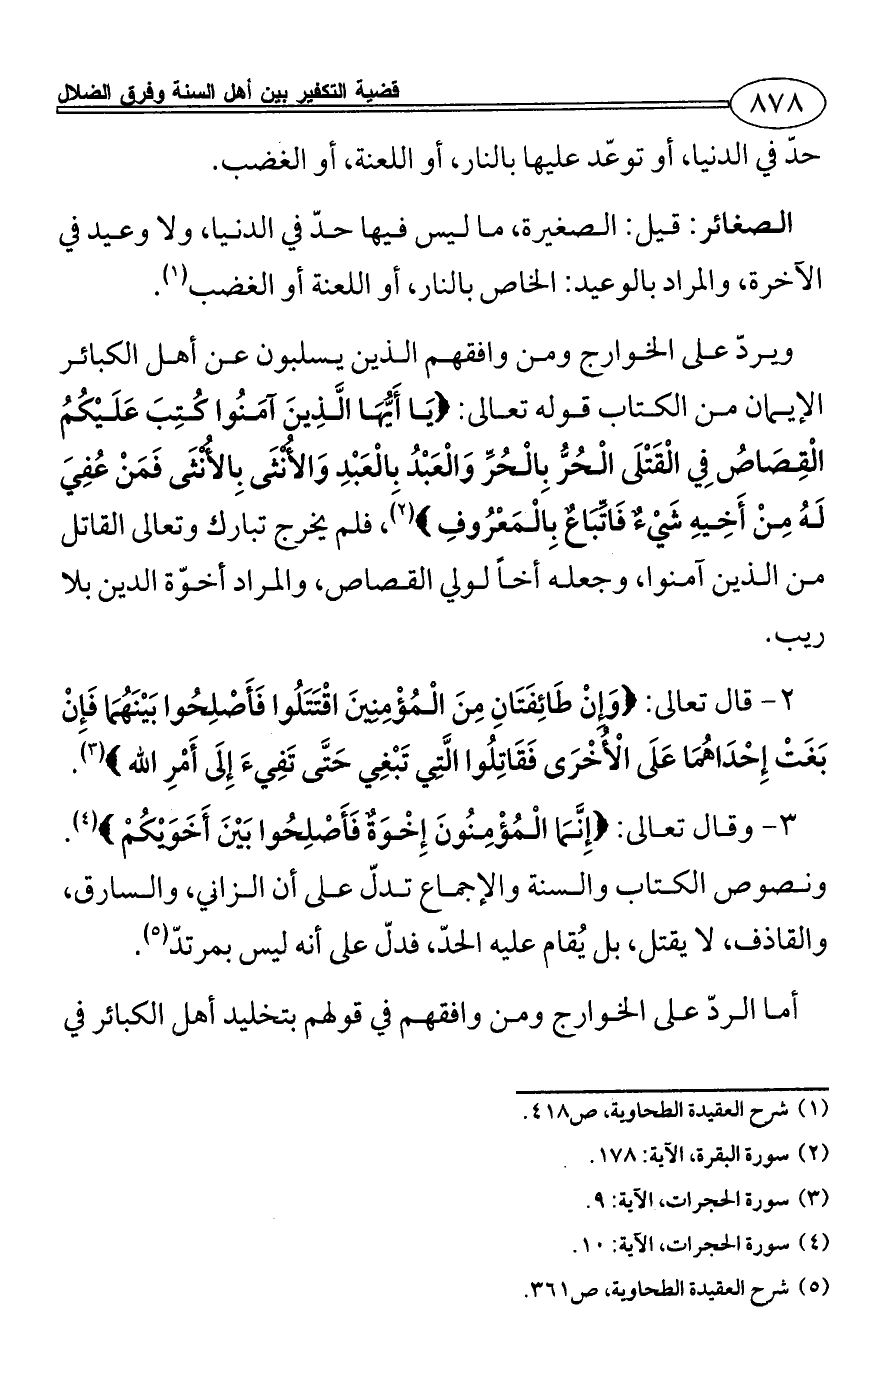 قضية التكفير بين أهل السنة وفرق الضلال
٨٧٨
حدّ في الدنيا، أو توعّد عليها بالنار، أو اللعنة، أو الغضب.
الصغائر: قيل: الصغيرة، ما ليس فيها حدّ في الدنيا، ولا وعيد في
الآخرة، والمراد بالوعيد: الخاص بالنار، أو اللعنة أو الغضب(١).
ويردّ على الخوارج ومن وافقهم الذين يسلبون عن أهل الكبائر
الإيمان من الكتاب قوله تعالى: ﴿يَا أَيُّهَا الَّذِينَ آمَنُوا كُتِبَ عَلَيْكُمُ
الْقِصَاصُ فِي الْقَتْلَى الْحُرُّ بِالْحُرِّ وَالْعَبْدُ بِالْعَبْدِ وَالأُنْثَى بِالأُنْثَى فَمَنْ عُفِيَ
لَهُ مِنْ أَخِيهِ شَيْءٌ فَاتِّبَاعٌ بِالْمَعْرُوفِ﴾(٢)، فلم يخرج تبارك وتعالى القاتل
من الذين آمنوا، وجعله أخاً لولي القصاص، والمراد أخوّة الدين بلا
ريب.
٢- قال تعالى: ﴿وَإِنْ طَائِفَتَانِ مِنَ الْمُؤْمِنِينَ اقْتَتَلُوا فَأَصْلِحُوا بَيْنَهُمَا فَإِنْ
بَغَتْ إِحْدَاهُمَا عَلَى الْأُخْرَى فَقَاتِلُوا الَّتِي تَبْغِي حَتَّى تَفِيءَ إِلَى أَمْرِ الله﴾(٣).
٣- وقال تعالى: ﴿إِنَّمَا الْمُؤْمِنُونَ إِخْوَةٌ فَأَصْلِحُوا بَيْنَ أَخَوَيْكُمْ﴾(٤).
ونصوص الكتاب والسنة والإجماع تدلّ على أن الزاني، والسارق،
والقاذف، لا يقتل، بل يُقام عليه الحدّ، فدلّ على أنه ليس بمرتدّ(٥).
أما الردّ على الخوارج ومن وافقهم في قولهم بتخليد أهل الكبائر في
(١) شرح العقيدة الطحاوية، ص٤١٨.
(٢) سورة البقرة، الآية: ١٧٨.
(٣) سورة الحجرات، الآية: ٩.
(٤) سورة الحجرات، الآية: ١٠.
(٥) شرح العقيدة الطحاوية، ص٣٦١.